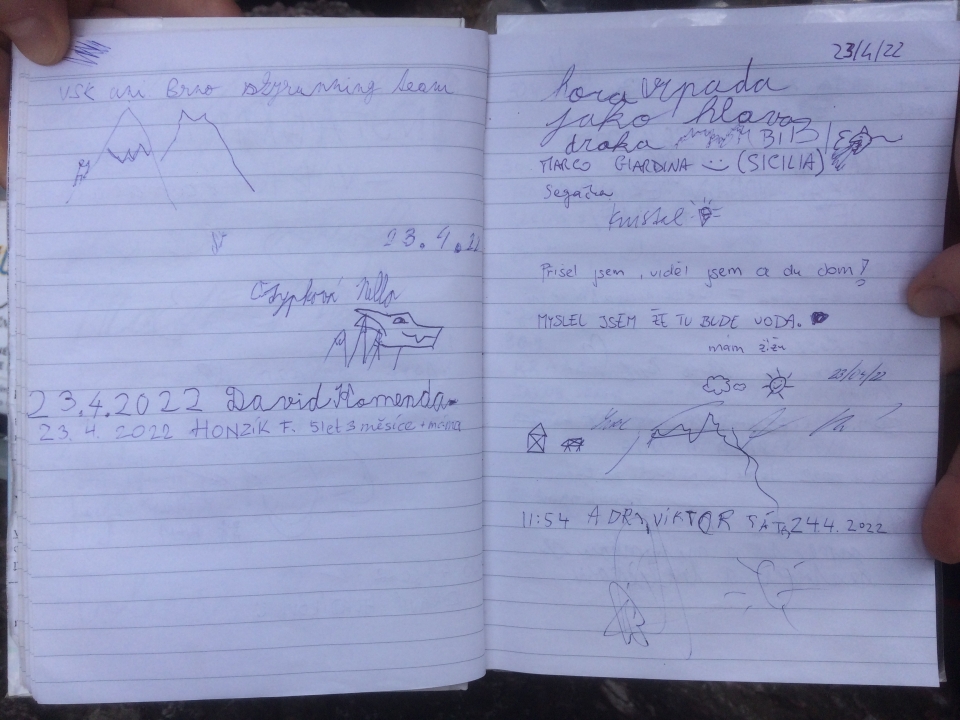 VSK uni Brno skyrunning team
23.4.22
Nella
23.4.2022 David Homenda
23. 4. 2022 HONZÍK F. 5let 3 měsíce + máma
23/4/22
hora vypada
jako hlava
draka BIB
MARCO GIARDINA (SICILIA)
Segačka
Přišel jsem, viděl jsem a du dom!
MYSLEL JSEM ŽE TU BUDE VODA.
mám žížu
23/04/22
11:54 ADRI, VIKTOR TÁTA 24.4. 2022